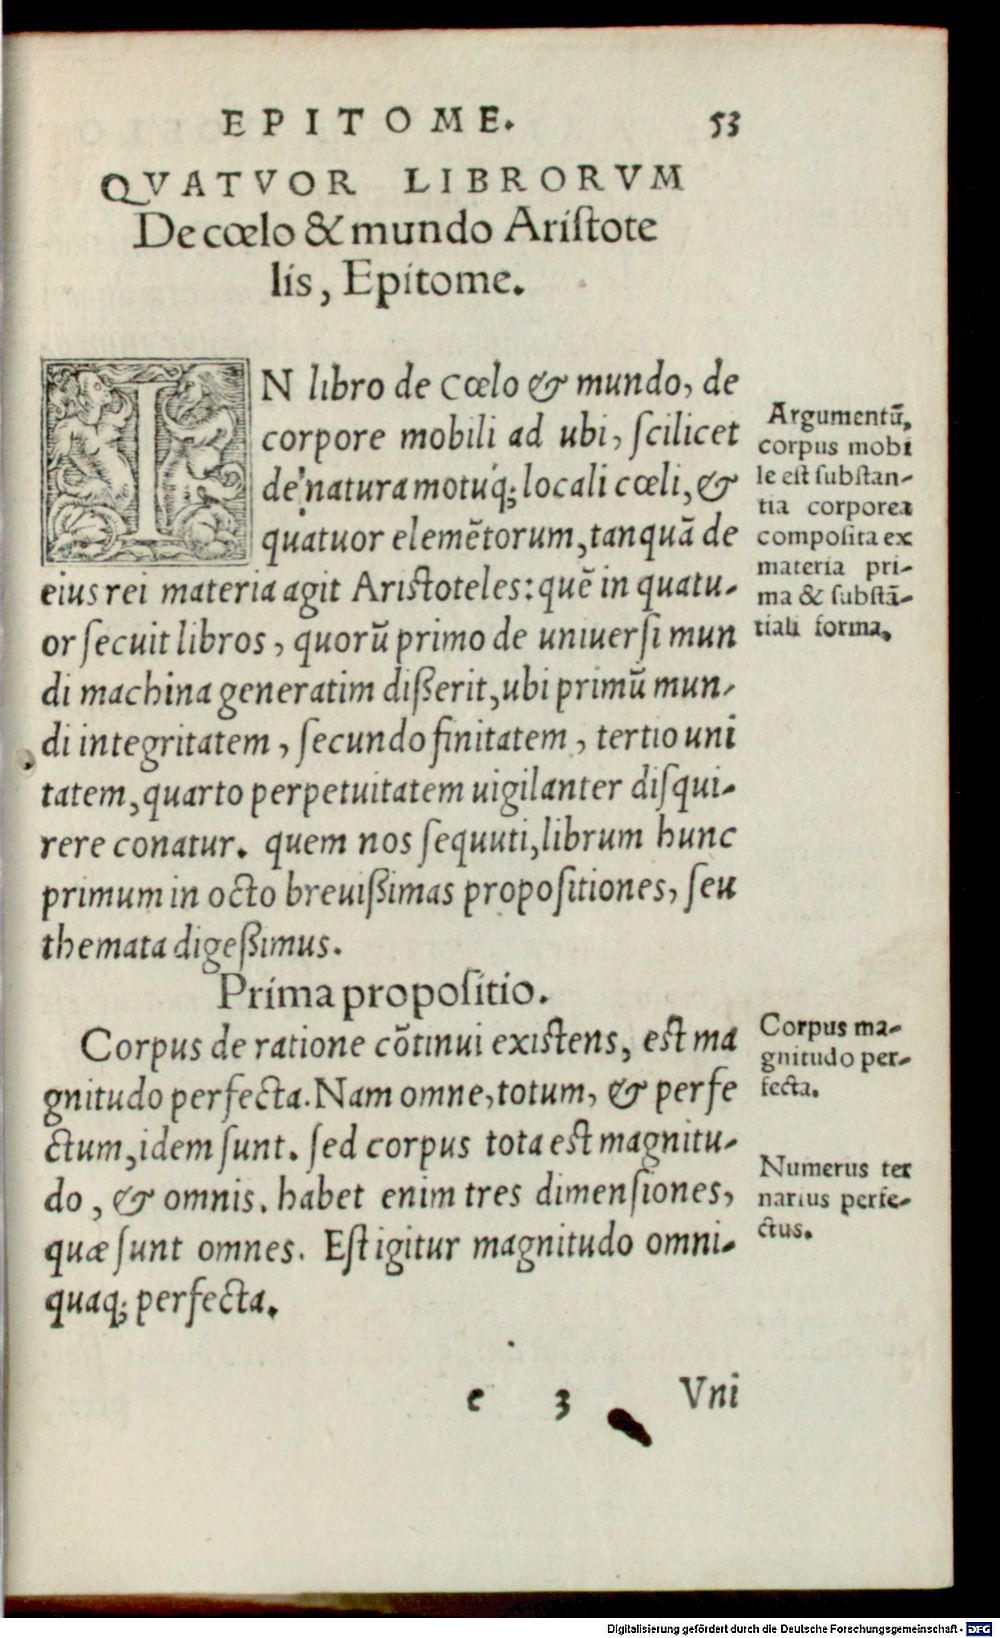 EPITOME. 53
QVATVOR LIBRORVM
De cœlo & mundo Ariſtote
lis, Epitome.
IN libro de cœlo & mundo, de
corpore mobili ad ubi, ſcilicet
de natura motuq́; locali cœli, &
quatuor elemẽtorum, tanquã de
eius rei materia agit Ariſtoteles: quẽ in quatu-
or ſecuit libros, quorũ primo de uniuerſi mun
di machina generatim diſſerit, ubi primũ mun-
di integritatem, ſecundo finitatem, tertio uni
tatem, quarto perpetuitatem uigilanter diſqui-
rere conatur. quem nos ſequuti, librum hunc
primum in octo breuiſſimas propoſitiones, ſeu
themata digeſſimus.
Argumentũ,
corpus mobi
le eſt ſubſtan-
tia corporea
compoſita ex
materia pri-
ma & ſubſtã-
tiali forma.
Prima propoſitio.
Corpus de ratione cõtinui exiſtens, eſt ma
gnitudo perfecta. Nam omne, totum, & perfe
ctum, idem ſunt. ſed corpus tota eſt magnitu-
do, & omnis. habet enim tres dimenſiones,
quæ ſunt omnes. Eſt igitur magnitudo omni-
quaq; perfecta.
Corpus ma-
gnitudo per-
fecta.
Numerus ter
narius perfe-
ctus.
e 3 Vni
Digitalisierung gefördert durch die Deutsche Forschungsgemeinschaft - DFG